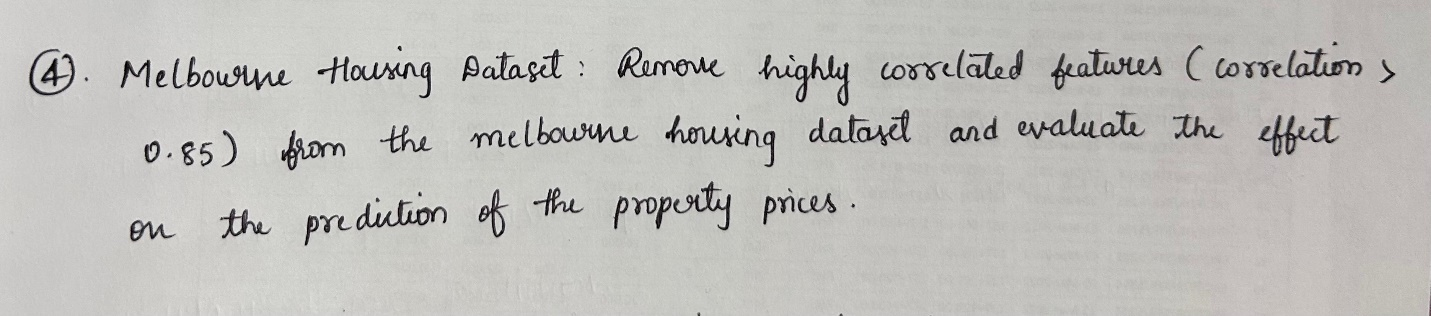 ④. Melbourne Housing Dataset : Remove highly correlated features ( correlation >
0.85) from the melbourne housing dataset and evaluate the effect
on the prediction of the property prices.